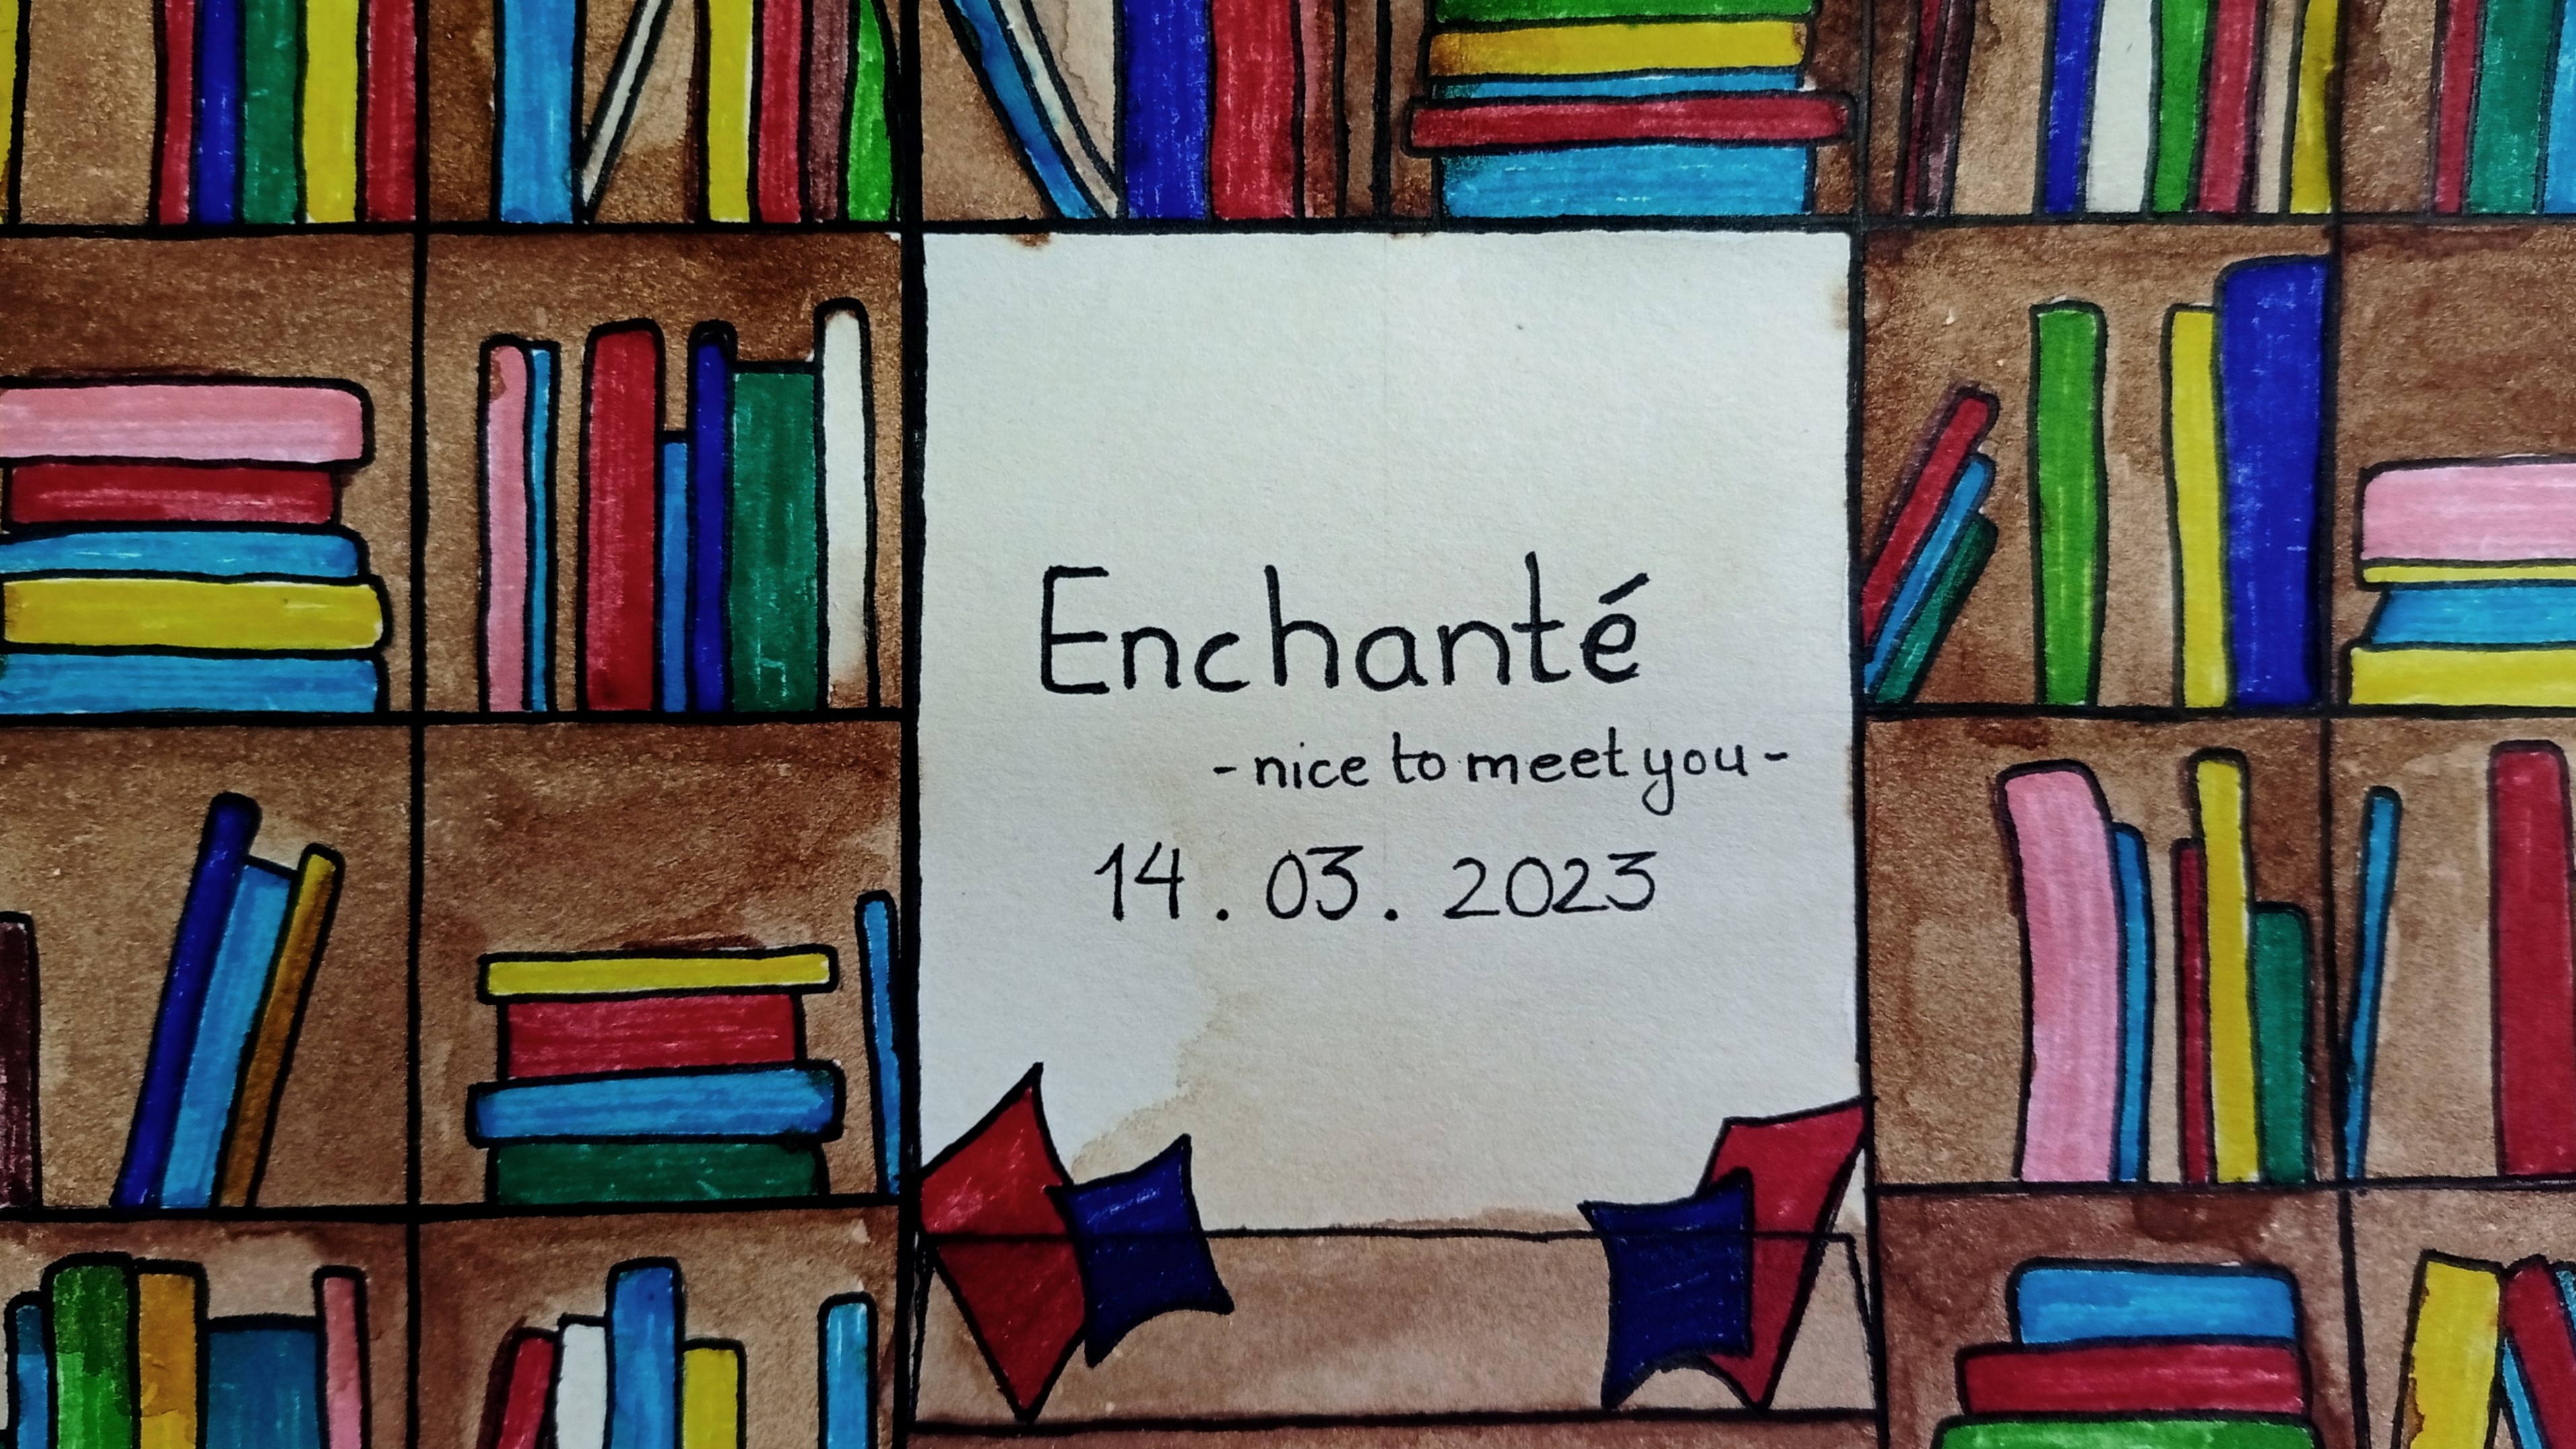 Enchanté
- nice to meet you -
14.03.2023